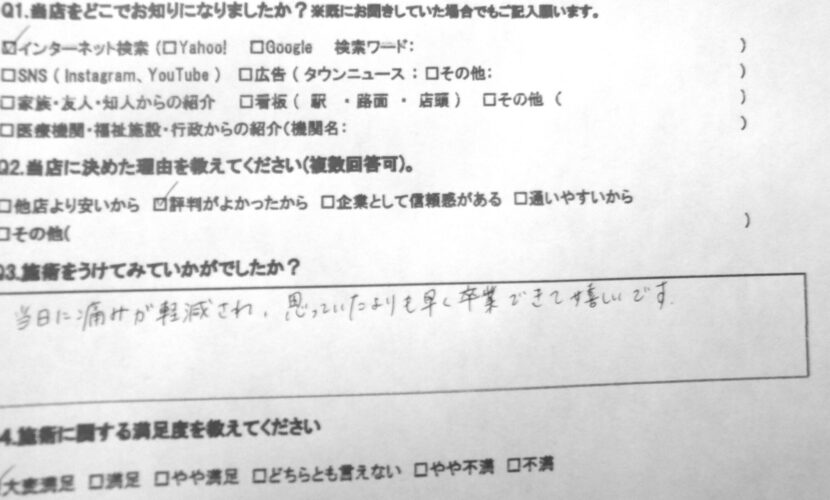 Q1.当店をどこでお知りになりましたか？※既にお聞きしていた場合でもご記入願います。
☑インターネット検索（□Yahoo! □Google 検索ワード： ）
□SNS（Instagram、YouTube）□広告（タウンニュース：□その他： ）
□家族・友人・知人からの紹介 □看板（駅 ・路面 ・店頭）□その他（ ）
□医療機関・福祉施設・行政からの紹介（機関名： ）
Q2.当店に決めた理由を教えてください（複数回答可）。
□他店より安いから ☑評判がよかったから □企業として信頼感がある □通いやすいから
□その他（ ）
Q3.施術をうけてみていかがでしたか？
当日に痛みが軽減され、思っていたよりも早く卒業できて嬉しいです。
4.施術に関する満足度を教えてください
☑大変満足 □満足 □やや満足 □どちらとも言えない □やや不満 □不満